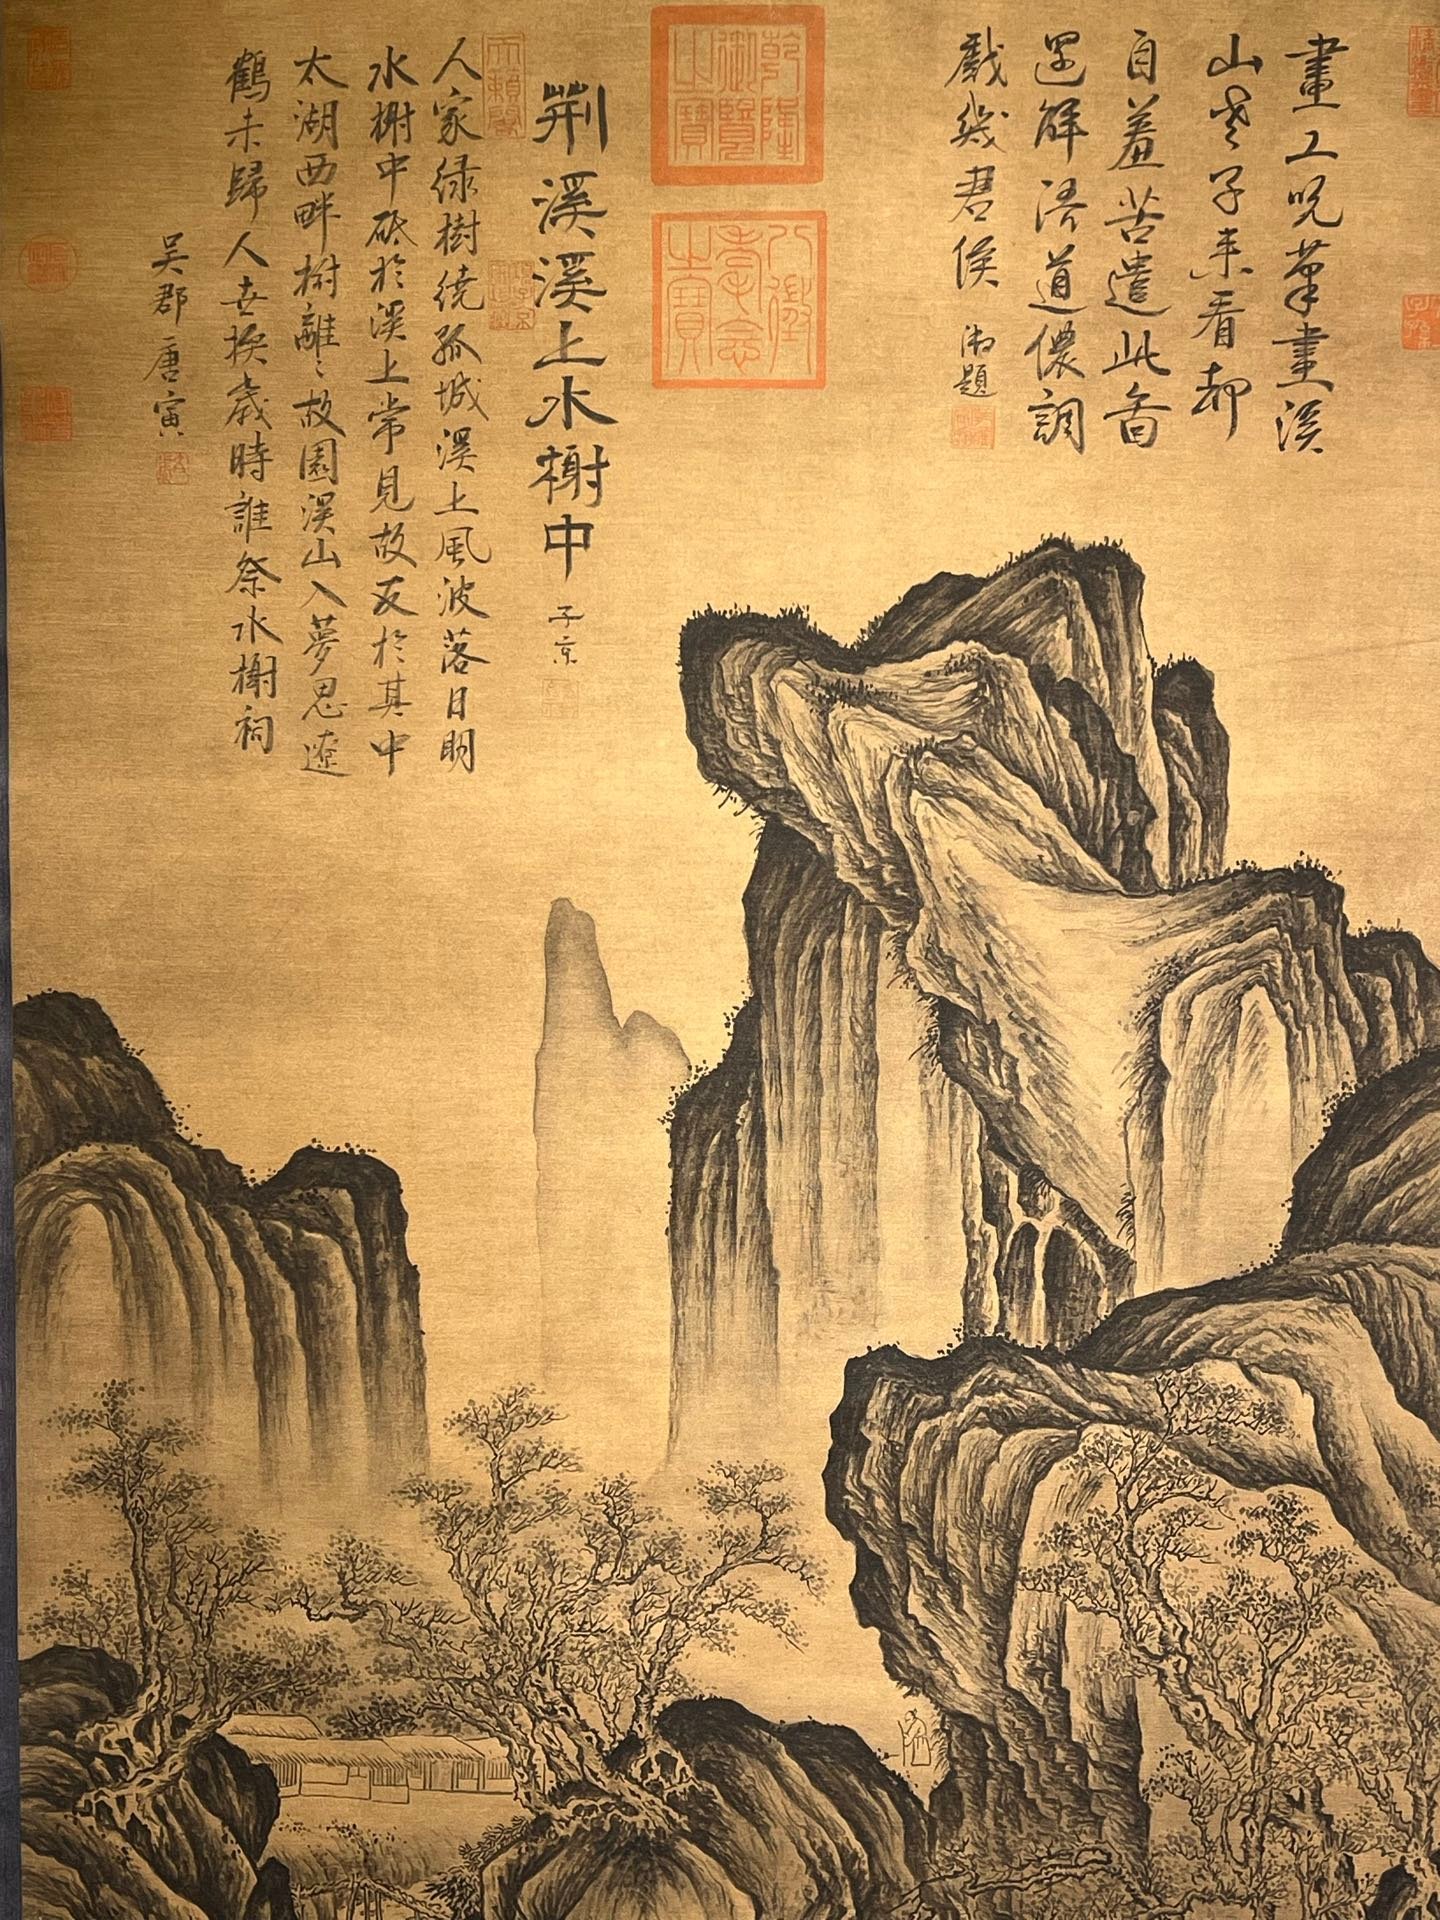 畫工吮筆畫溪
山老子来看却
自羞苦遣此圖
還解語道儂調
戲幾君侯
題
乾隆御覽之寶
八徵耄念之寶
荆溪溪上水榭中
子京
天籟閣
人家绿樹繞孤城溪上風波落日明
水榭中砥於溪上常見故友於其中
太湖西畔樹離〻故園溪山入夢思遼
鶴未歸人世換歲時誰祭水榭祠
吴郡唐寅